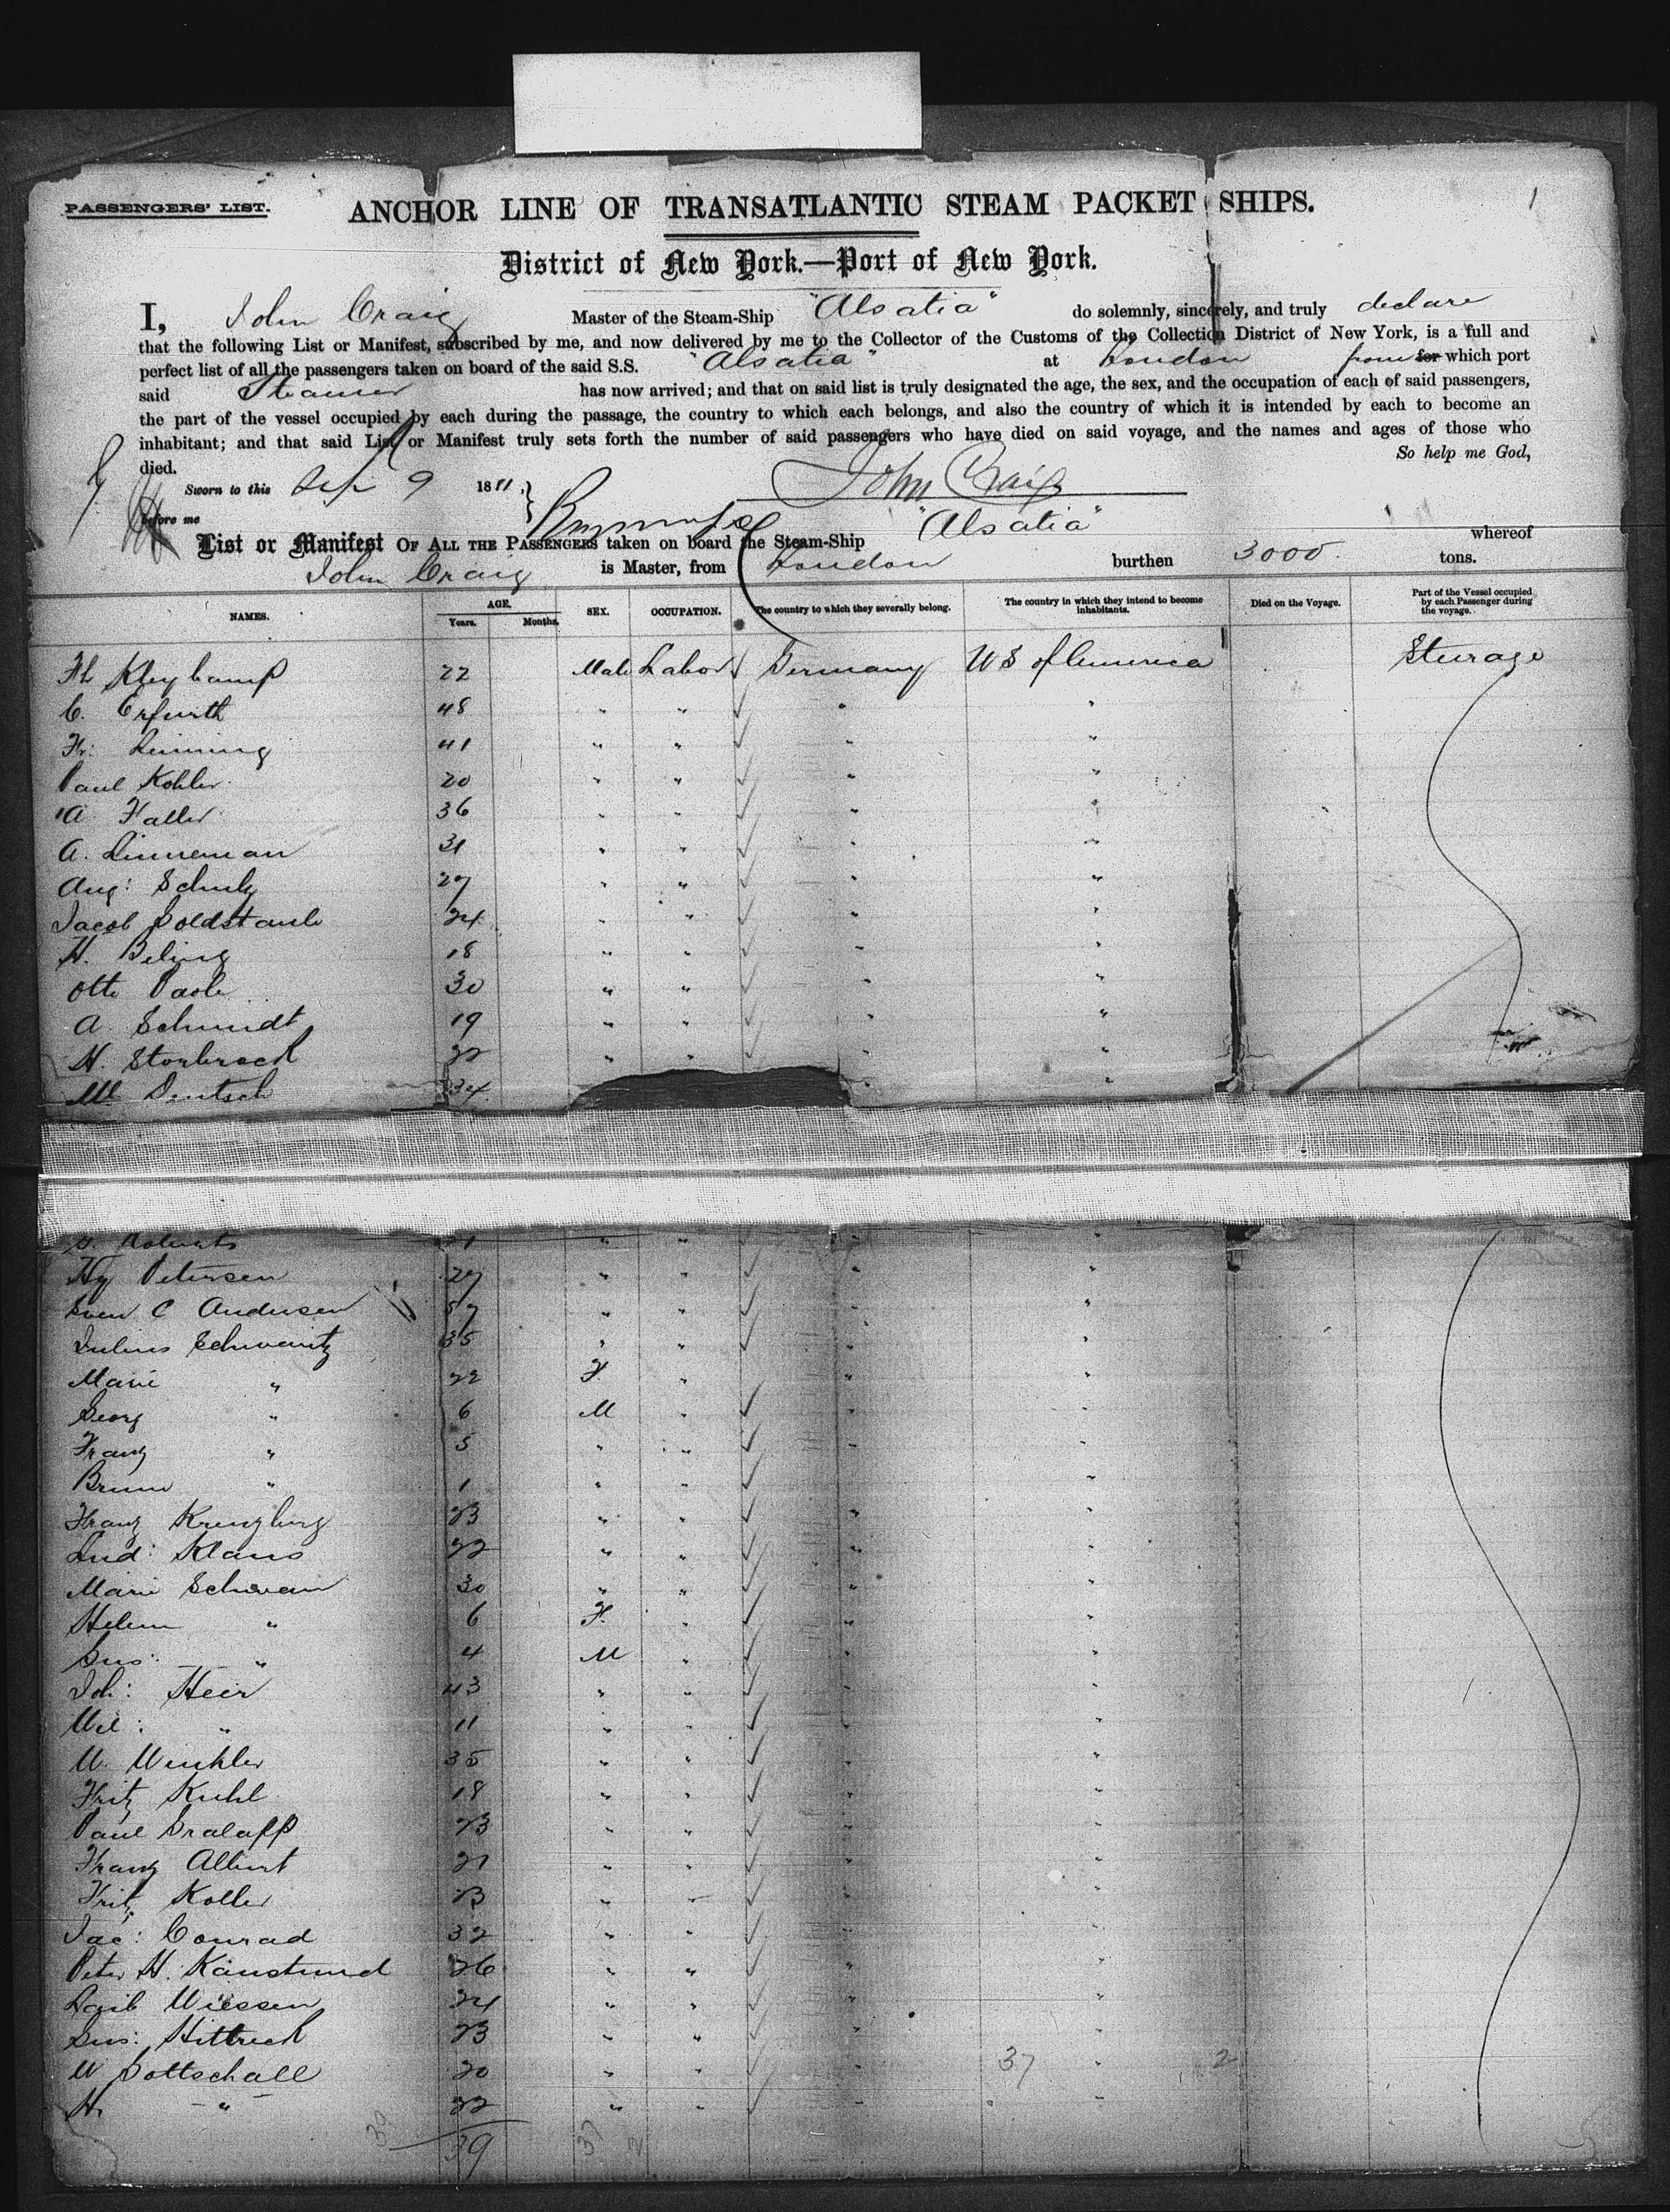 PASSENGERS' LIST.
ANCHOR LINE OF TRANSATLANTIC STEAM PACKET SHIPS.
1
District of New York.—Port of New York.
I, John Craig Master of the Steam-Ship "Alsatia" do solemnly, sincerely, and truly declare
that the following List or Manifest, subscribed by me, and now delivered by me to the Collector of the Customs of the Collection District of New York, is a full and
perfect list of all the passengers taken on board of the said S.S. "Alsatia" at London from for which port
said Steamer has now arrived; and that on said list is truly designated the age, the sex, and the occupation of each of said passengers,
the part of the vessel occupied by each during the passage, the country to which each belongs, and also the country of which it is intended by each to become an
inhabitant; and that said List or Manifest truly sets forth the number of said passengers who have died on said voyage, and the names and ages of those who
died. So help me God,
Sworn to this Sep 9 1881 John Craig
before me
List or Manifest OF ALL THE PASSENGERS taken on board the Steam-Ship "Alsatia" whereof
John Craig is Master, from London burthen 3000 tons.
NAMES. AGE. Years. Months. SEX. OCCUPATION. The country to which they severally belong. The country in which they intend to become inhabitants. Died on the Voyage. Part of the Vessel occupied by each Passenger during the voyage.
Fh Kleykamp 22 Male Labor Germany US of America Steerage
C. Erfurth 48 " " " "
Fr: Leining 41 " " " "
Paul Kohler 20 " " " "
A Faller 36 " " " "
A. Linneman 31 " " " "
Aug: Schulz 27 " " " "
Jacob Goldstaub 24 " " " "
H. Beling 18 " " " "
Otto Pasle 30 " " " "
A. Schmidt 19 " " " "
H. Storbrock 22 " " " "
M Deutsch 34 " "
Roberts " " " "
Hy Petersen 27 " " " "
Sven C Andersen 57 " " " "
Julius Schwantz 35 " " " "
Marie " 22 F. " " "
Georg " 6 M " " "
Franz " 5 " " " "
Bruno " 1 " " " "
Franz Krenzling 23 " " " "
Lud: Klaus 22 " " " "
Marie Schwan 30 " " " "
Helene " 6 F. " " "
Gus: " 4 M " " "
Joh: Heir 43 " " " "
Wil: " 11 " " " "
W. Winkler 35 " " " "
Fritz Kuhl 18 " " " "
Paul Gralapp 23 " " " "
Franz Albert 21 " " " "
Fritz Koller 23 " " " "
Jac: Conrad 32 " " " "
Peter H. Kanstrund 26 " " " "
Laib Wiessen 24 " " " "
Gus: Hittrich 23 " " " "
W Gottschall 20 " " " 37 " 2
H. " 22 " " " "
39 37 2